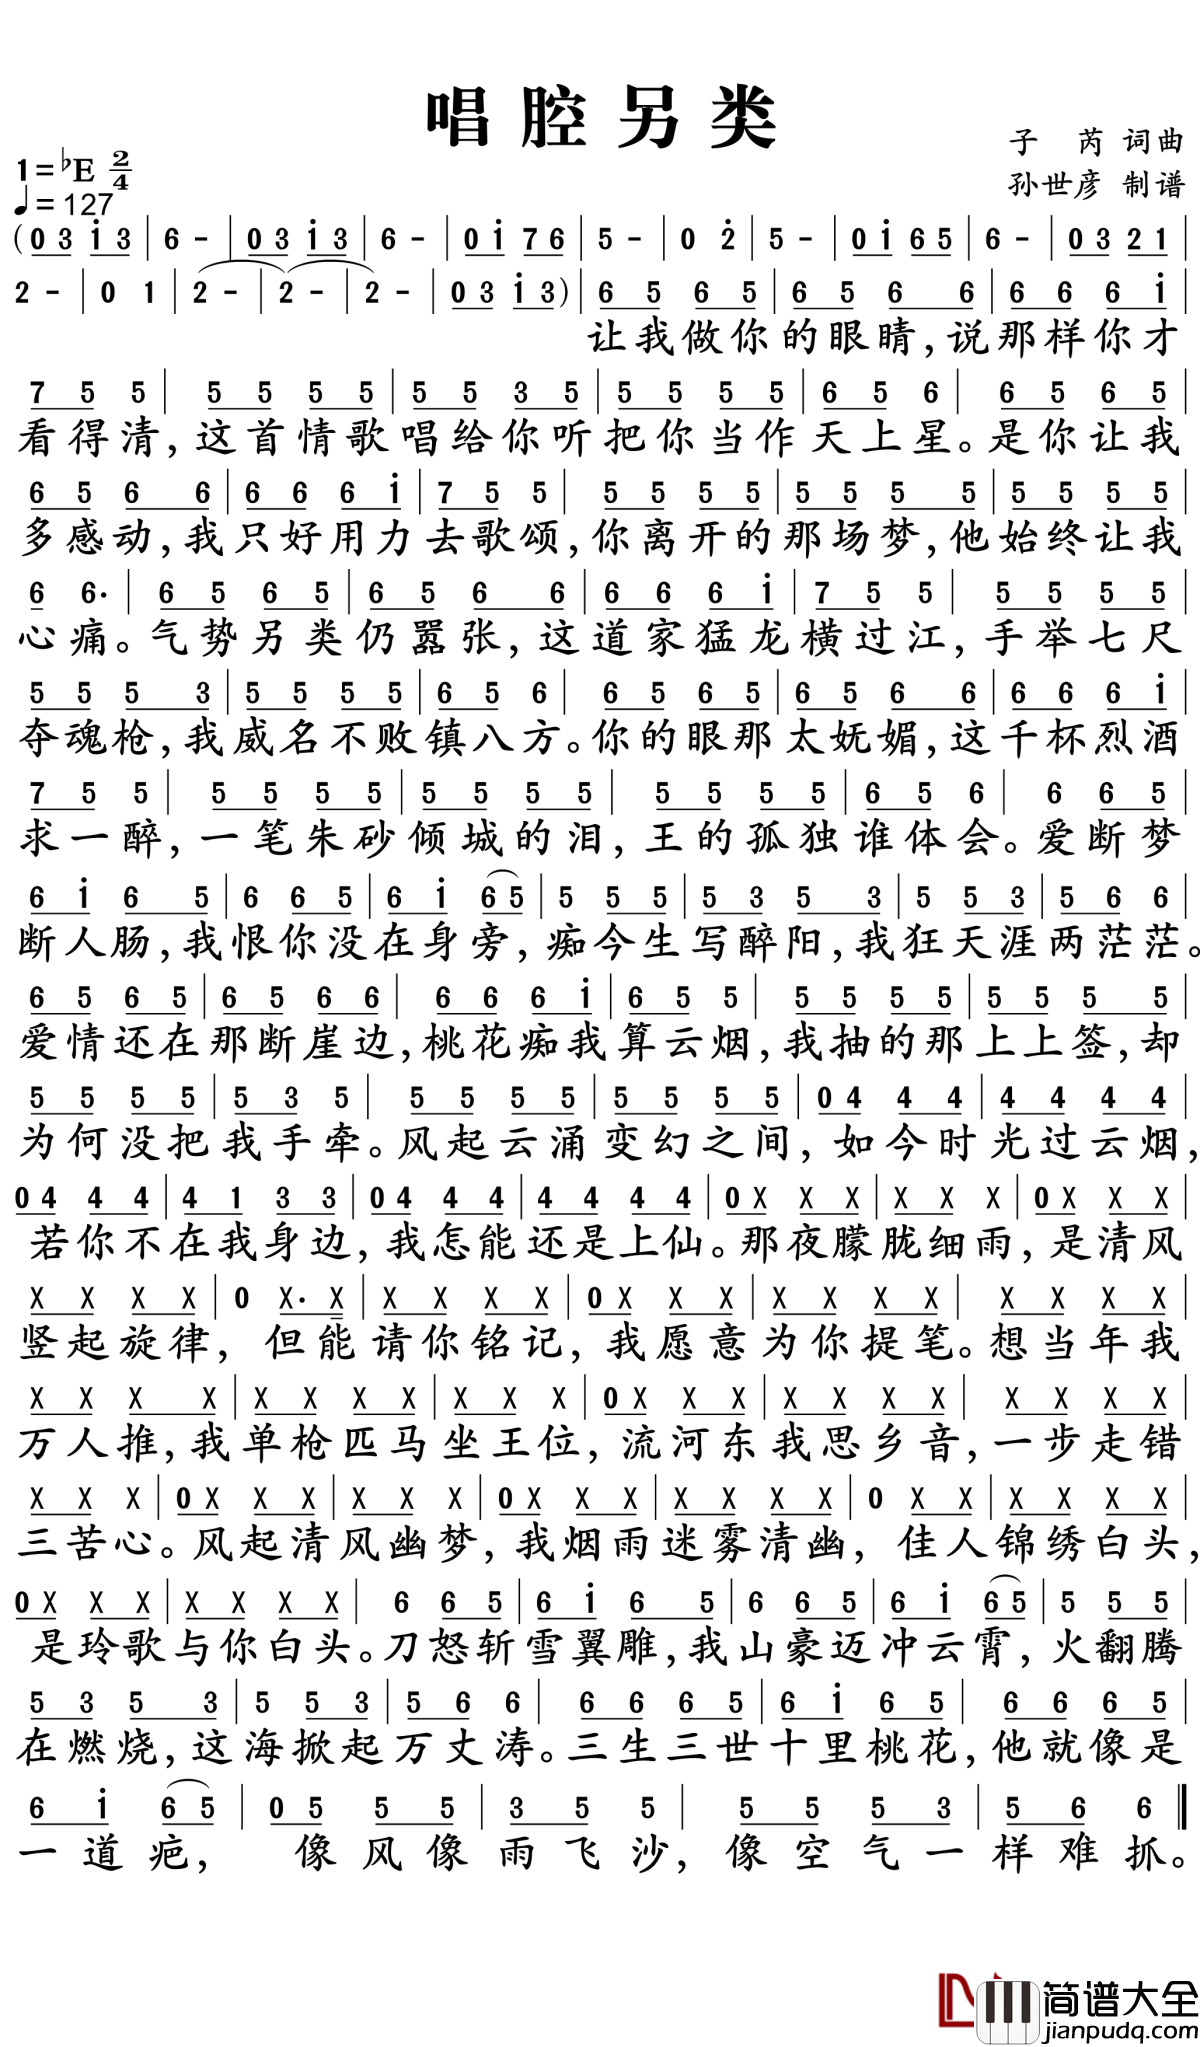 唱腔另类
子 芮 词曲
1=♭E 2/4
孙世彦 制谱
♩=127
(0 3 i 3 | 6 - | 0 3 i 3 | 6 - | 0 i 7 6 | 5 - | 0 2 | 5 - | 0 i 6 5 | 6 - | 0 3 2 1 |
2 - | 0 1 | 2 - | 2 - | 2 - | 0 3 i 3) | 6 5 6 5 | 6 5 6 6 | 6 6 6 i |
让我做你的眼睛,说那样你才
7 5 5 | 5 5 5 5 | 5 5 3 5 | 5 5 5 5 | 6 5 6 | 6 5 6 5 |
看得清,这首情歌唱给你听把你当作天上星。是你让我
6 5 6 6 | 6 6 6 i | 7 5 5 | 5 5 5 5 | 5 5 5 5 | 5 5 5 5 |
多感动,我只好用力去歌颂,你离开的那场梦,他始终让我
6 6· | 6 5 6 5 | 6 5 6 6 | 6 6 6 i | 7 5 5 | 5 5 5 5 |
心痛。气势另类仍嚣张,这道家猛龙横过江,手举七尺
5 5 5 3 | 5 5 5 5 | 6 5 6 | 6 5 6 5 | 6 5 6 6 | 6 6 6 i |
夺魂枪,我威名不败镇八方。你的眼那太妩媚,这千杯烈酒
7 5 5 | 5 5 5 5 | 5 5 5 5 | 5 5 5 5 | 6 5 6 | 6 6 5 |
求一醉,一笔朱砂倾城的泪,王的孤独谁体会。爱断梦
6 i 6 5 | 6 6 5 | 6 i 6 5 | 5 5 5 | 5 3 5 3 | 5 5 3 | 5 6 6 |
断人肠,我恨你没在身旁,痴今生写醉阳,我狂天涯两茫茫。
6 5 6 5 | 6 5 6 6 | 6 6 6 i | 6 5 5 | 5 5 5 5 | 5 5 5 5 |
爱情还在那断崖边,桃花痴我算云烟,我抽的那上上签,却
5 5 5 5 | 5 3 5 | 5 5 5 5 | 5 5 5 5 | 0 4 4 4 | 4 4 4 4 |
为何没把我手牵。风起云涌变幻之间,如今时光过云烟,
0 4 4 4 | 4 1 3 3 | 0 4 4 4 | 4 4 4 4 | 0 X X X | X X X | 0 X X X |
若你不在我身边,我怎能还是上仙。那夜朦胧细雨,是清风
X X X X | 0 X· X | X X X X | 0 X X X | X X X X | X X X X |
竖起旋律,但能请你铭记,我愿意为你提笔。想当年我
X X X X | X X X X | X X X | 0 X X X | X X X X | X X X X |
万人推,我单枪匹马坐王位,流河东我思乡音,一步走错
X X X | 0 X X X | X X X | 0 X X X | X X X X | 0 X X | X X X X |
三苦心。风起清风幽梦,我烟雨迷雾清幽,佳人锦绣白头,
0 X X X | X X X X | 6 6 5 | 6 i 6 5 | 6 6 5 | 6 i 6 5 | 5 5 5 |
是玲歌与你白头。刀怒斩雪翼雕,我山豪迈冲云霄,火翻腾
5 3 5 3 | 5 5 3 | 5 6 6 | 6 6 6 5 | 6 i 6 5 | 6 6 6 5 |
在燃烧,这海掀起万丈涛。三生三世十里桃花,他就像是
6 i 6 5 | 0 5 5 5 | 3 5 5 | 5 5 5 3 | 5 6 6 ‖
一道疤,像风像雨飞沙,像空气一样难抓。
简谱大全
jianpudq.com